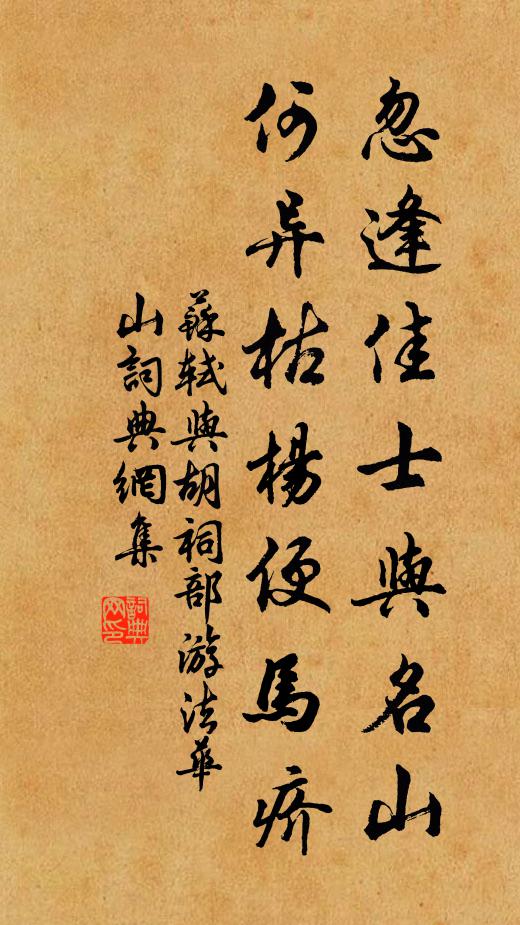 忽逢佳士與名山
何异枯楊便馬疥
蘇軾與胡祠部游法華
山詞典網集
詞典
网印